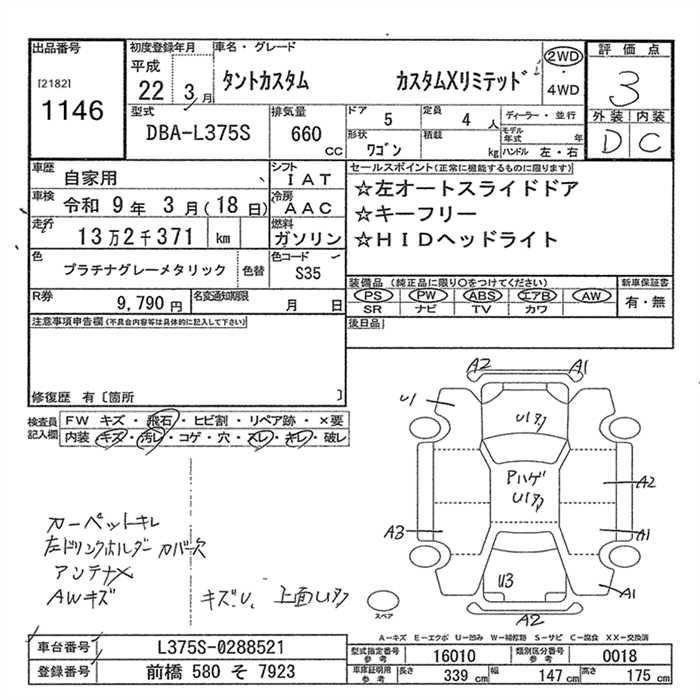 出品番号
[2182]
1146
初度登録年月
平成
22 3月
車名・グレード
タントカスタム カスタムXリミテッド
2WD
4WD
評価点
3
外装 内装
D C
型式
DBA-L375S
排気量
660 cc
ドア 5
定員 4 人
形状 ワゴン
積載 kg
ディーラー・並行
モデル年式 年
ハンドル 左・右
車歴 自家用
シフト IAT
車検 令和 9年 3月(18日)
冷房 AAC
走行 13万2千371 km
燃料 ガソリン
色 プラチナグレーメタリック 色替
色コード S35
R券 9,790円
名変通知期限 月 日
セールスポイント(正常に機能するものに限ります)
☆左オートスライドドア
☆キーフリー
☆HIDヘッドライト
装備品(純正品に限り○をつけてください)
PS PW ABS エアB AW
SR ナビ TV カワ
新車保証書
有・無
後日品
注意事項申告欄(不具合内容等は具体的に記入して下さい)
修復歴 有〔箇所 〕
検査員記入欄
FW キズ・飛石・ヒビ割・リペア跡・×要
内装 キズ・汚レ・コゲ・穴・スレ・キレ・破レ
カーペットキレ
左ドリンクホルダーカバー欠
アンテナ×
AWキズ
キズ.U. 上面U多
A2 A1
U1
U1多
Pハゲ
U1多
A2
A3
A1
U3
A1
A2
スペア
A-キズ E-エクボ U-凹み W-補修跡 S-サビ C-腐食 XX-交換済
車台番号 L375S-0288521
登録番号 前橋 580 そ 7923
型式指定番号 参考 16010
類別区分番号 参考 0018
車体証明用 参考 長さ 339 cm 幅 147 cm 高さ 175 cm